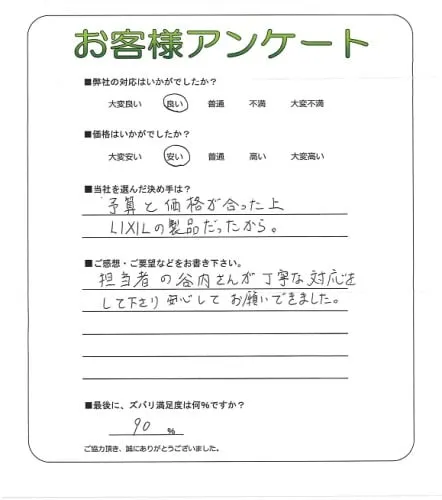 お客様アンケート
■弊社の対応はいかがでしたか？
大変良い 良い 普通 不満 大変不満
■価格はいかがでしたか？
大変安い 安い 普通 高い 大変高い
■当社を選んだ決め手は？
予算と価格が合った上
LIXILの製品だったから。
■ご感想・ご要望などをお書き下さい。
担当者の谷内さんが丁寧な対応を
して下さり安心してお願いできました。
■最後に、ズバリ満足度は何％ですか？
90 ％
ご協力頂き、誠にありがとうございました。